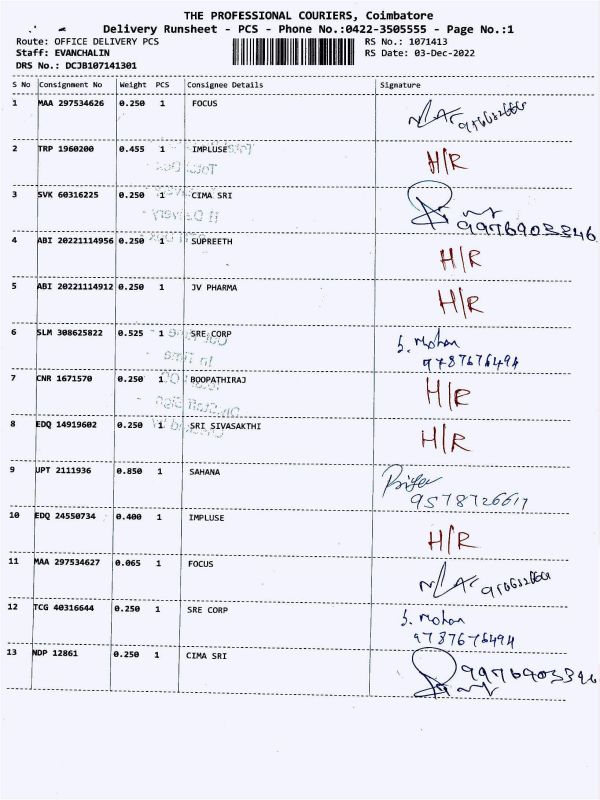 THE PROFESSIONAL COURIERS, Coimbatore
Delivery Runsheet - PCS - Phone No.:0422-3505555 - Page No.:1
Route: OFFICE DELIVERY PCS RS No.: 1071413
Staff: EVANCHALIN RS Date: 03-Dec-2022
DRS No.: DCJB107141301
S No Consignment No Weight PCS Consignee Details Signature
1 MAA 297534626 0.250 1 FOCUS
2 TRP 1960200 0.455 1 IMPLUSE H/R
3 SVK 60316225 0.250 1 CIMA SRI 9976903346
4 ABI 20221114956 0.250 1 SUPREETH H/R
5 ABI 20221114912 0.250 1 JV PHARMA H/R
6 SLM 308625822 0.525 1 SRE CORP S. Mohan
9787676494
7 CNR 1671570 0.250 1 BOOPATHIRAJ H/R
8 EDQ 14919602 0.250 1 SRI SIVASAKTHI H/R
9 UPT 2111936 0.850 1 SAHANA
9578726617
10 EDQ 24550734 0.400 1 IMPLUSE H/R
11 MAA 297534627 0.065 1 FOCUS
12 TCG 40316644 0.250 1 SRE CORP S. Mohan
9787676494
13 NDP 12861 0.250 1 CIMA SRI 9976903346